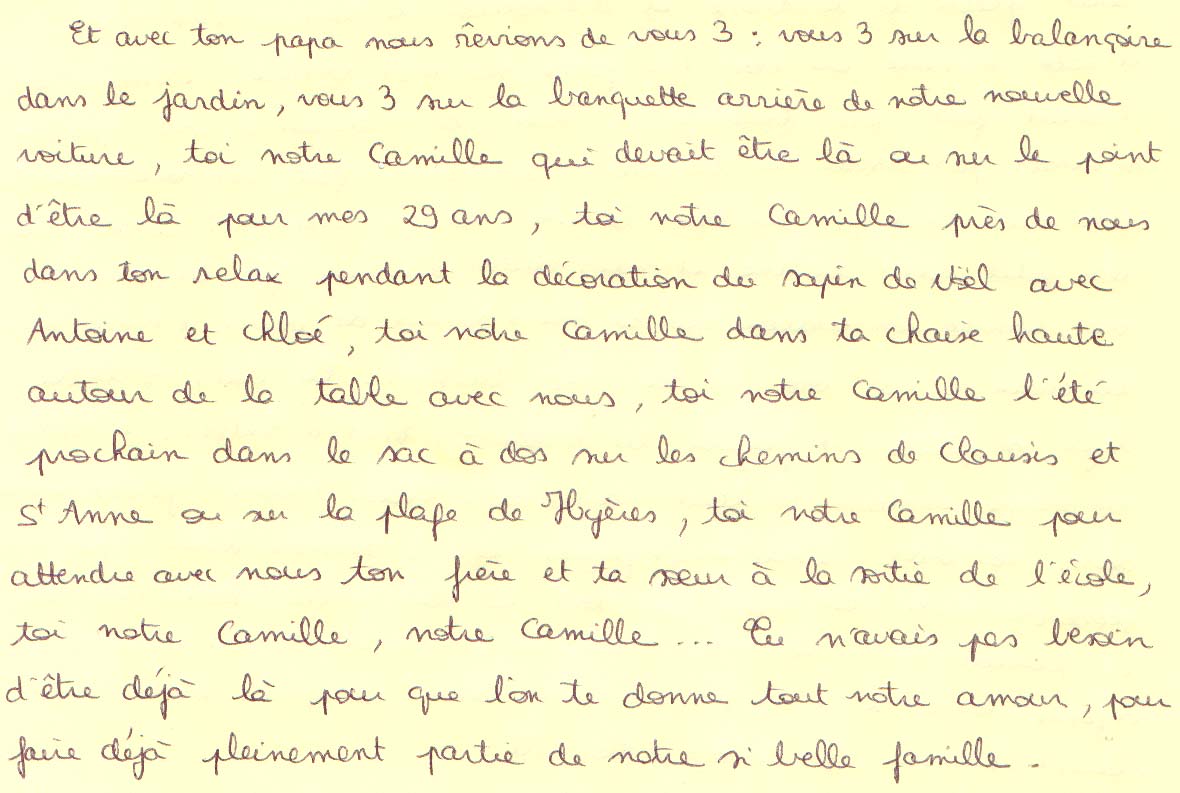 Et avec ton papa nous rêvions de vous 3 : vous 3 sur la balançoire
dans le jardin, vous 3 sur la banquette arrière de notre nouvelle
voiture, toi notre Camille qui devait être là ou sur le point
d'être là pour mes 29 ans, toi notre Camille près de nous
dans ton relax pendant la décoration du sapin de Noël avec
Antoine et Chloé, toi notre Camille dans ta chaise haute
autour de la table avec nous, toi notre Camille l'été
prochain dans le sac à dos sur les chemins de Clausis et
St Anne ou sur la plage de Hyères, toi notre Camille pour
attendre avec nous ton frère et ta soeur à la sortie de l'école,
toi notre Camille, notre Camille... Tu n'avais pas besoin
d'être déjà là pour que l'on te donne tout notre amour, pour
faire déjà pleinement partie de notre si belle famille.